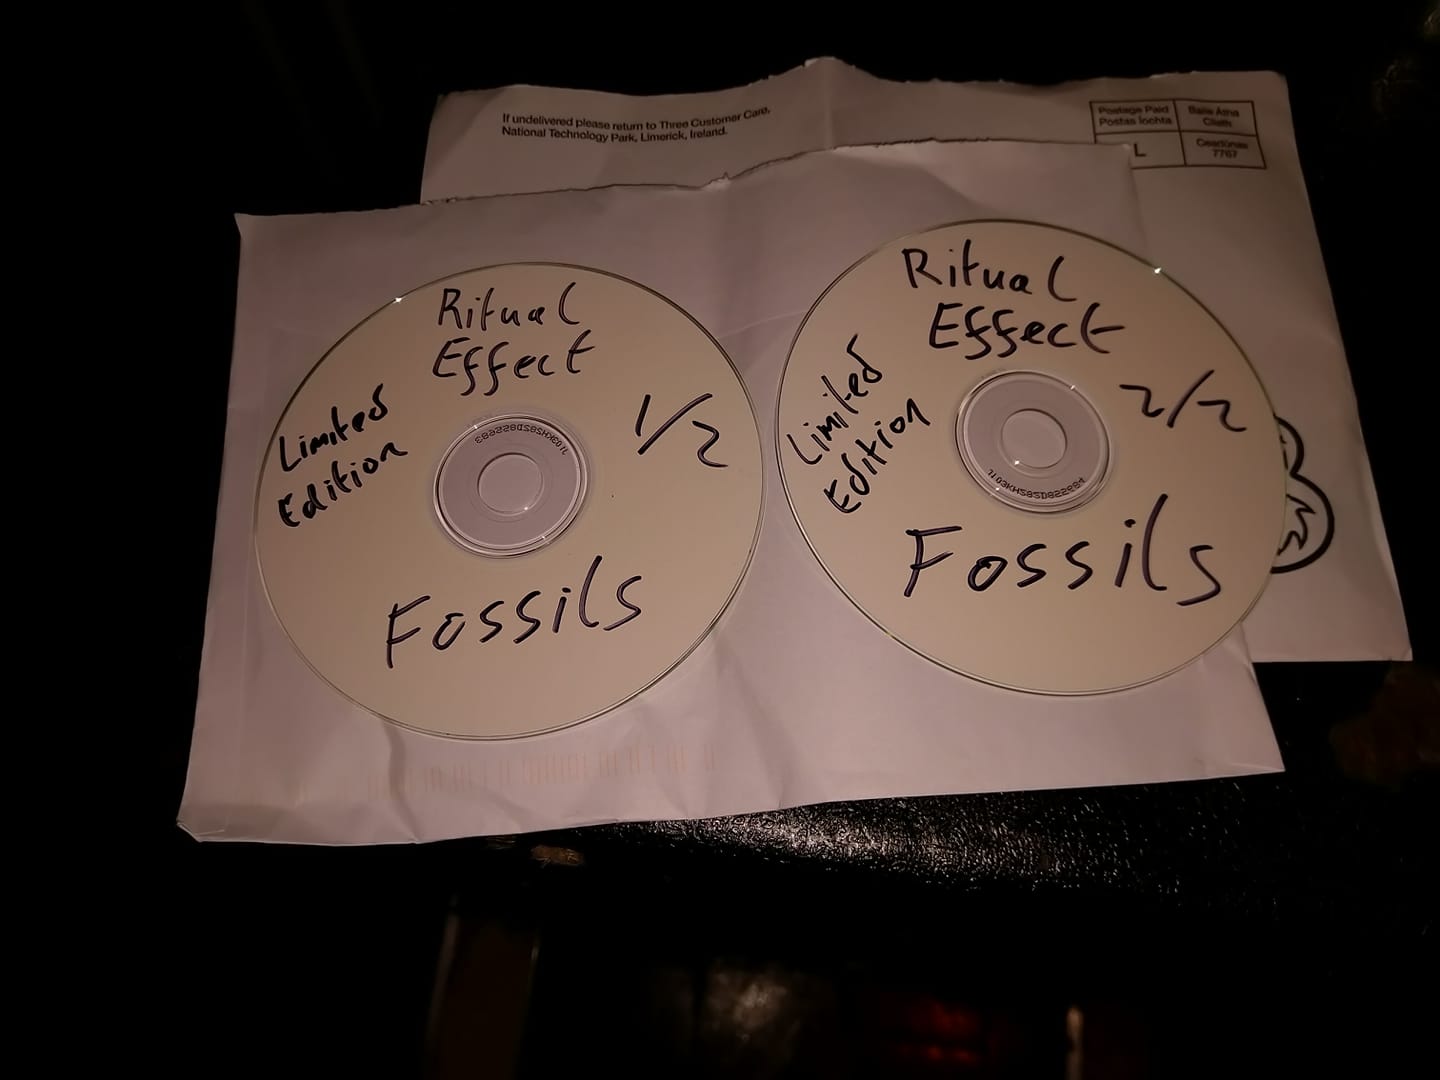 If undelivered please return to Three Customer Care,
National Technology Park, Limerick, Ireland.
Postage Paid
Postas Íoctha
Baile Átha
Cliath
L
Ceadúnas
7767
Ritual
Effect
Limited
Edition
1/2
Fossils
Ritual
Effect
Limited
Edition
2/2
Fossils